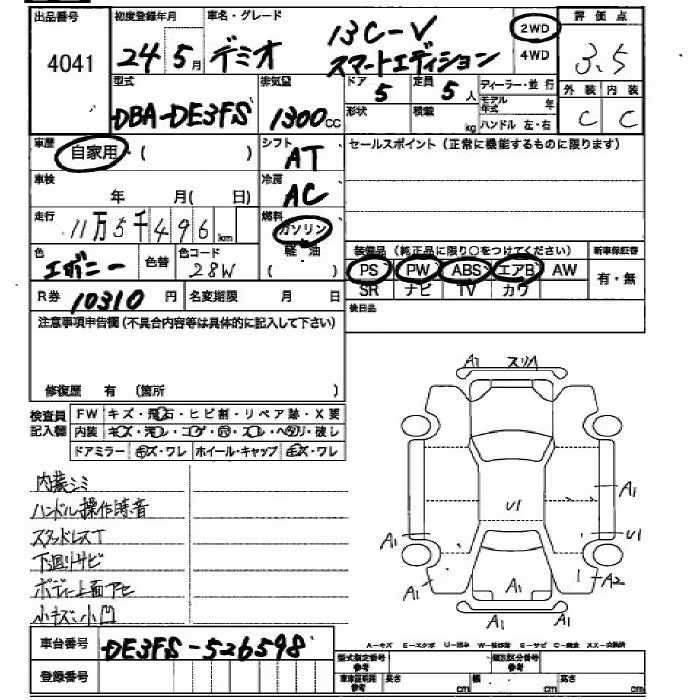 出品番号 初度登録年月 車名・グレード 2WD 評価点
4041 24年 5月 デミオ 13C-V スマートエディション 4WD 3.5
型式 排気量 ドア 定員 ディーラー・並行 外装 内装
DBA-DE3FS 1300cc 5 5人 モデル年式 年 C C
形状 積載 kg ハンドル 左・右
車歴 自家用・( ) シフト AT セールスポイント(正常に機能するものに限ります)
車検 年 月( 日) 冷房 AC
走行 11万5千496km 燃料 ガソリン
軽・油
( )
色 エボニー 色替 色コード 28W
装備品(純正品に限り○をつけてください) 新車保証書
PS PW ABS エアB AW 有・無
SR ナビ TV カワ
R券 10310円 名変期限 月 日 検日品
注意事項申告欄(不具合内容等は具体的に記入して下さい)
修復歴 有 (箇所 )
検査員記入欄 FW キズ・飛石・ヒビ割・リペア跡・X要
内装 キズ・汚レ・コゲ・凹・スレ・ヘタリ・破レ
ドアミラー キズ・ワレ ホイール・キャップ キズ・ワレ
内装シミ
ハンドル操作時音
スタッドレスT
下廻リサビ
ボディ上面アセ
小キズ小凹
A1 スリA
A1
U1
A1 U1
A1 A1 A2
A1 A1
車台番号 DE3FS-526598
登録番号
A-キズ E-エクボ U-凹ミ S-サビ C-腐食 XX-交換済
型式指定番号 参考 類別区分番号 参考
長さ cm 幅 cm 高さ cm